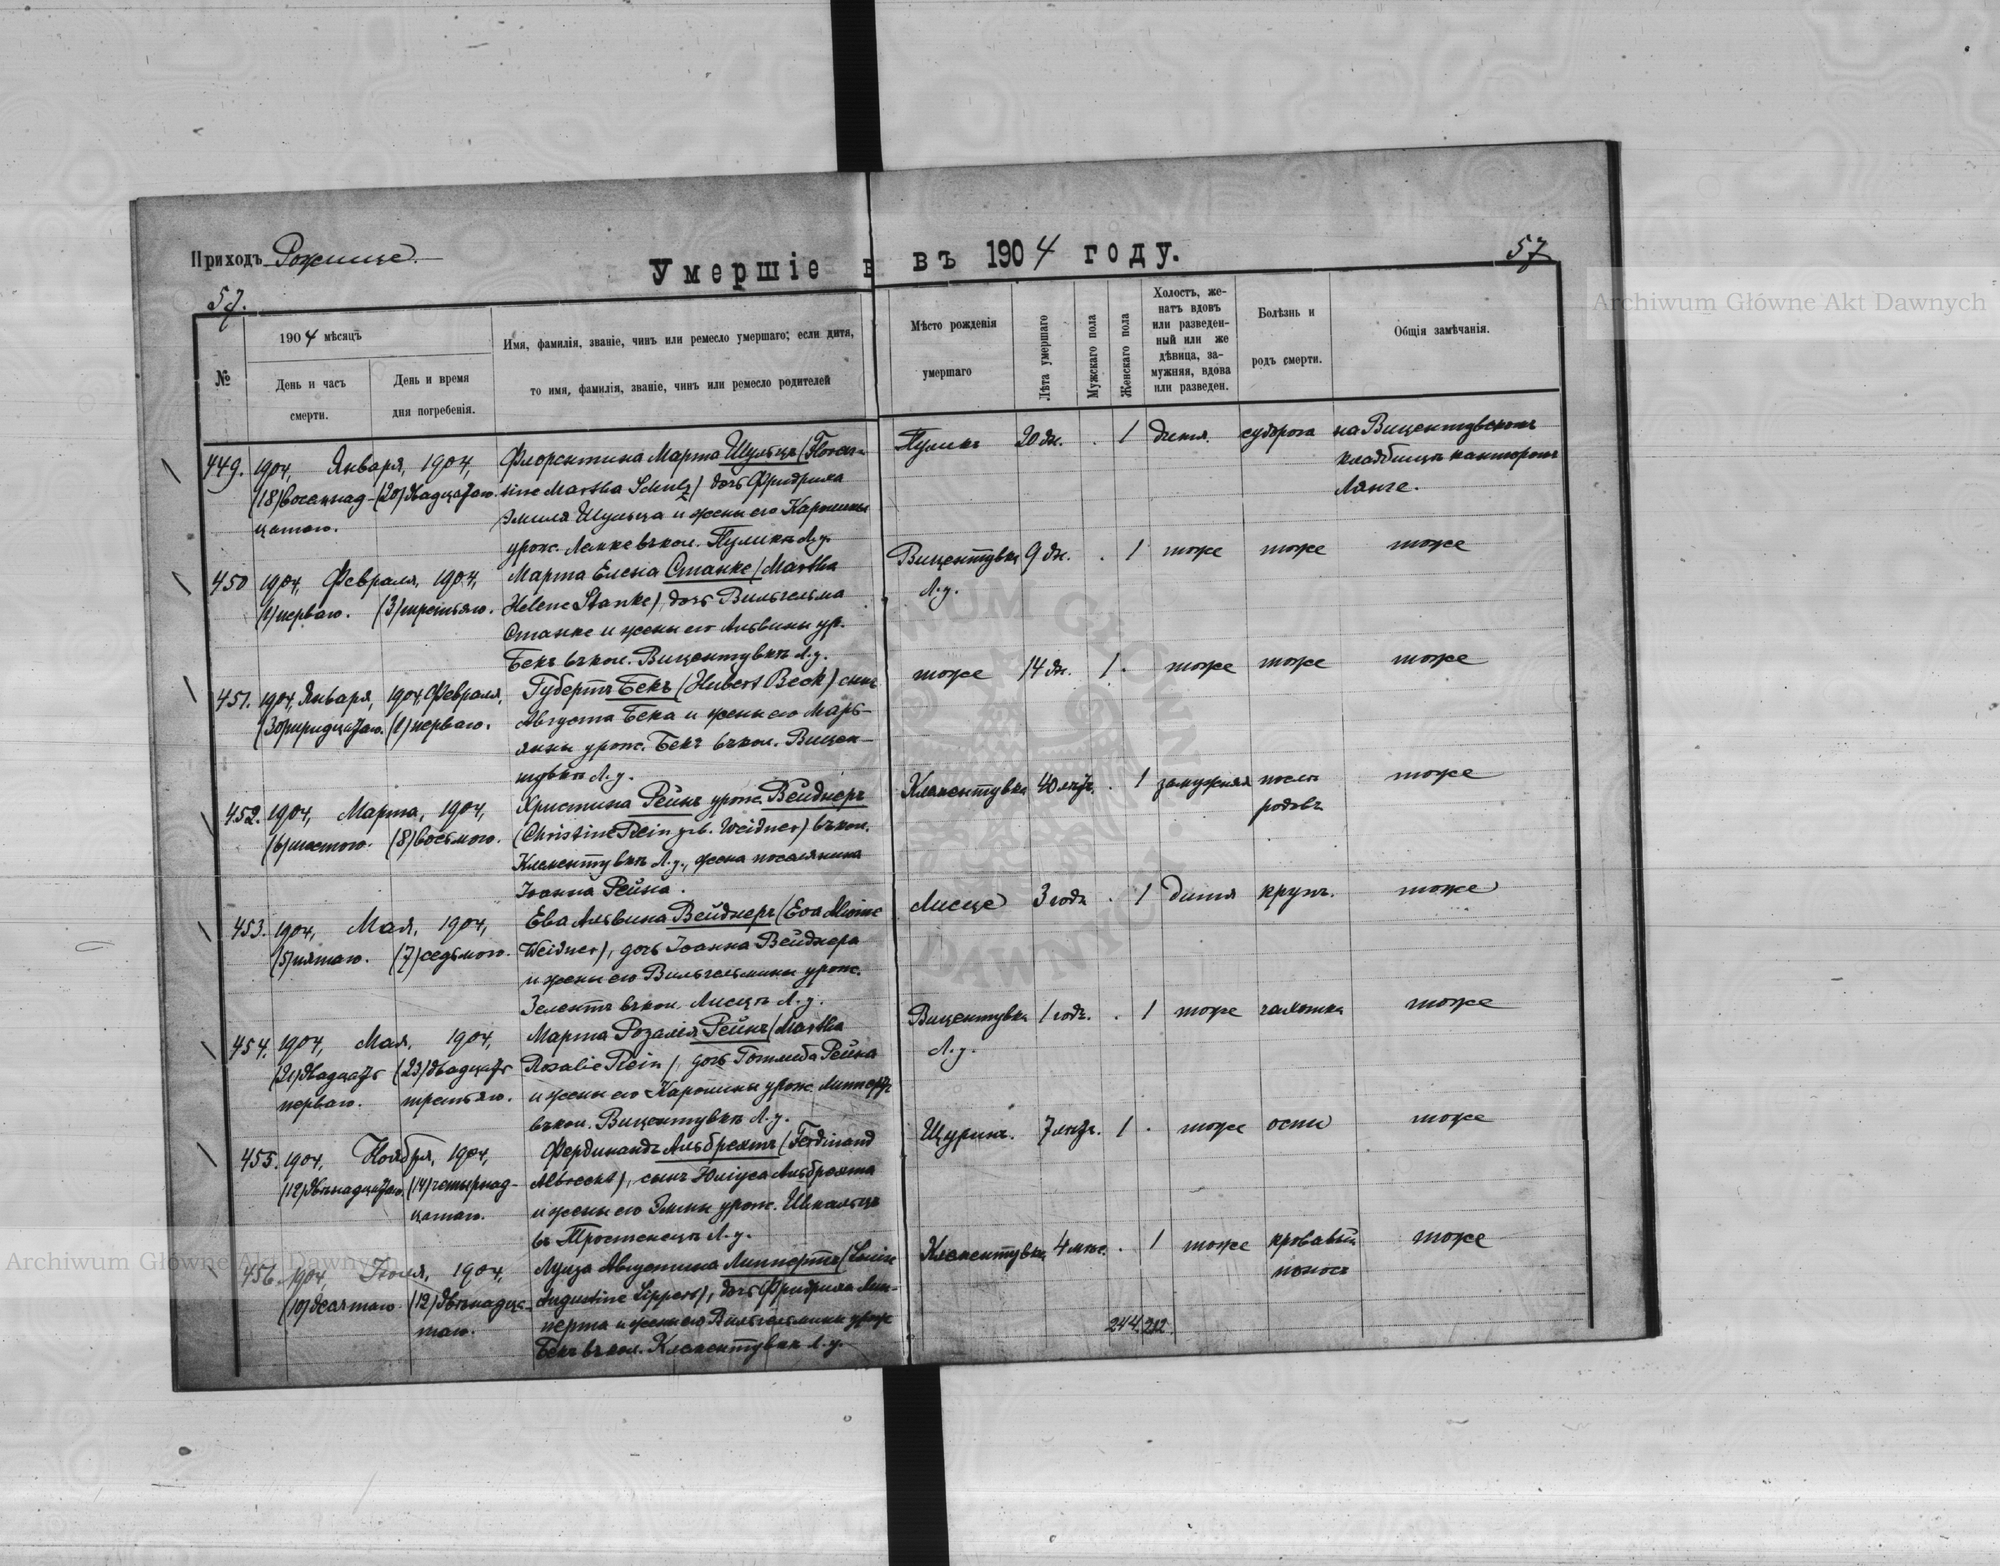 Приходъ Рожище.
Умершіе въ 1904 году.
57
57.
№
1904 мѣсяцъ
День и часъ смерти.
День и время дня погребенія.
Имя, фамилія, званіе, чинъ или ремесло умершаго; если дитя,
то имя, фамилія, званіе, чинъ или ремесло родителей
Мѣсто рожденія
умершаго
Лѣта умершаго
Мужскаго пола
Женскаго пола
Холостъ, же-
натъ вдовъ
или разведен-
ный или же
дѣвица, за-
мужняя, вдова
или разведен.
Болѣзнь и
родъ смерти.
Общія замѣчанія.
449. 1904, Января, 1904, Флорентина Марта Шульцъ (Floren- Пулинъ 20 дн. . 1 дитя. судорога на Вицентувскомъ
(18) восемнад- (20) двадцатаго. tine Martha Schulz) дочь Фридриха кладбищѣ канторомъ
цатаго. Эмиля Шульца и жены его Каролины Лянге.
урож. Лемке въ кол. Пулинѣ Л.у.
450 1904, Февраля, 1904, Марта Елена Станке (Martha Вицентувка 9 дн. . 1 тоже тоже тоже
(1) перваго. (3) третьяго. Helene Stanke), дочь Вильгельма Л.у.
Станке и жены его Альвины ур.
Бекъ въ кол. Вицентувкѣ Л.у.
451. 1904, Января, 1904, Февраля, Губертъ Бекъ (Hubert Beck) сынъ тоже 14 дн. 1 . тоже тоже тоже
(30) тридцатаго. (1) перваго. Августа Бека и жены его Марь-
янны урож. Бекъ въ кол. Вицен-
тувкѣ Л.у.
452. 1904, Марта, 1904, Христина Рейнъ урож. Вейднеръ Клементувка 40 лѣтъ. . 1 замужняя послѣ тоже
(6) шестого. (8) восьмого. (Christine Rein geb. Weidner) въ кол. родовъ
Клементувкѣ Л.у., жена поселянина
Іоанна Рейна.
453. 1904, Мая, 1904, Ева Альвина Вейднеръ (Eva Alwine Лисце 3 года . 1 дитя крупъ. тоже
(5) пятаго. (7) седьмого. Weidner), дочь Іоанна Вейднера
и жены его Вильгельмины урож.
въ кол. Лисцѣ Л.у.
454. 1904, Мая, 1904, Марта Розалія Рейнъ (Martha Вицентувка 1 годъ. . 1 тоже чахотка тоже
(21) двадцать (23) двадцать Rosalie Rein), дочь Готлиба Рейна Л.у.
перваго. третьяго. и жены его Каролины урож. Липпертъ
въ кол. Вицентувкѣ Л.у.
455. 1904, Ноября, 1904, Фердинандъ Альбрехтъ (Ferdinand Щуринъ. 7 лѣтъ. 1 . тоже оспы тоже
(12) двѣнадцатаго. (14) четырнад- Albrecht), сынъ Юліуса Альбрехта
цатаго. и жены его Эммы урож.
въ Тростенецѣ Л.у.
456. 1904, Іюля, 1904, Луиза Августина Липпертъ (Louise Клементувка 4 мѣс. . 1 тоже кровавый тоже
(10) десятаго (12) двѣнадца- Augustine Lippert), дочь Фридриха Лип- поносъ
таго. перта и жены его Вильгельмины урож.
Бекъ въ кол. Клементувкѣ Л.у.
244. 212.
Archiwum Główne Akt Dawnych
Archiwum Główne Akt Dawnych